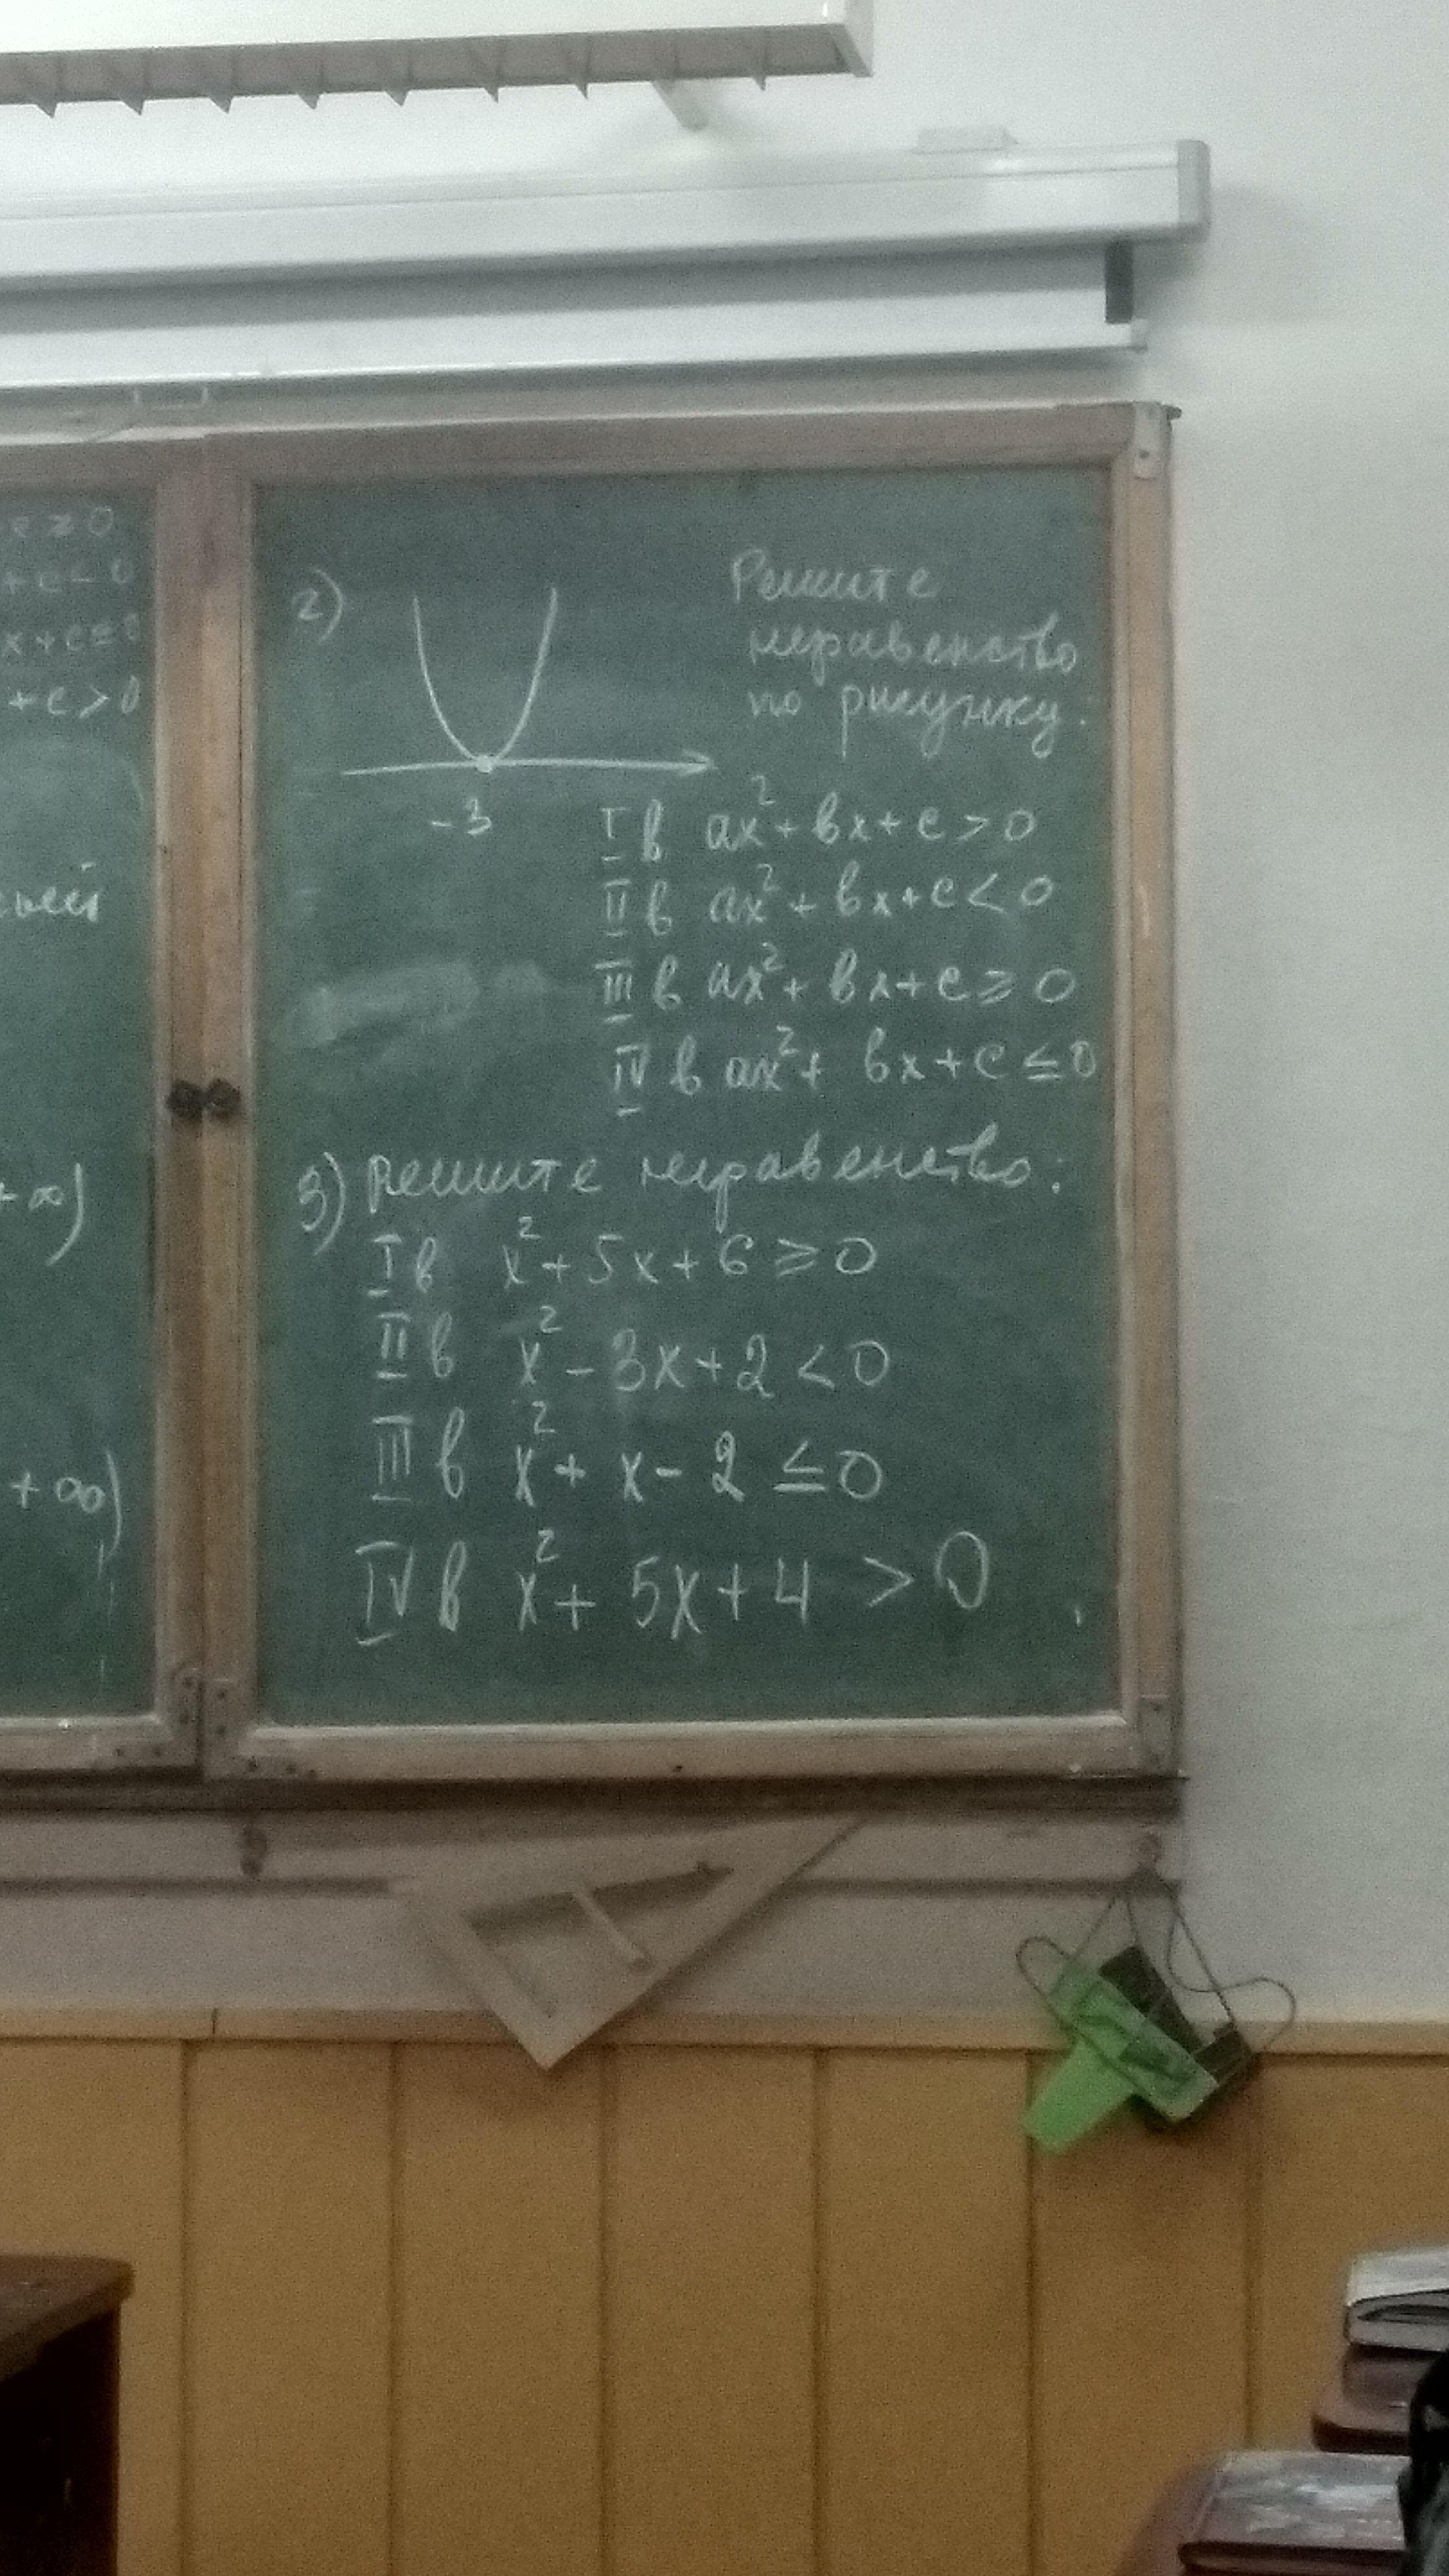 с ≥ 0
+ с < 0
х + с ≤ 0
+ с > 0
+ ∞)
+ ∞)
2)
Решите
неравенство
по рисунку:
-3
I в ax² + вx + с > 0
II в ax² + вx + с < 0
III в ax² + вx + с ≥ 0
IV в ax² + вx + с ≤ 0
3) Решите неравенство:
I в x² + 5x + 6 ≥ 0
II в x² - 3x + 2 < 0
III в x² + x - 2 ≤ 0
IV в x² + 5x + 4 > 0